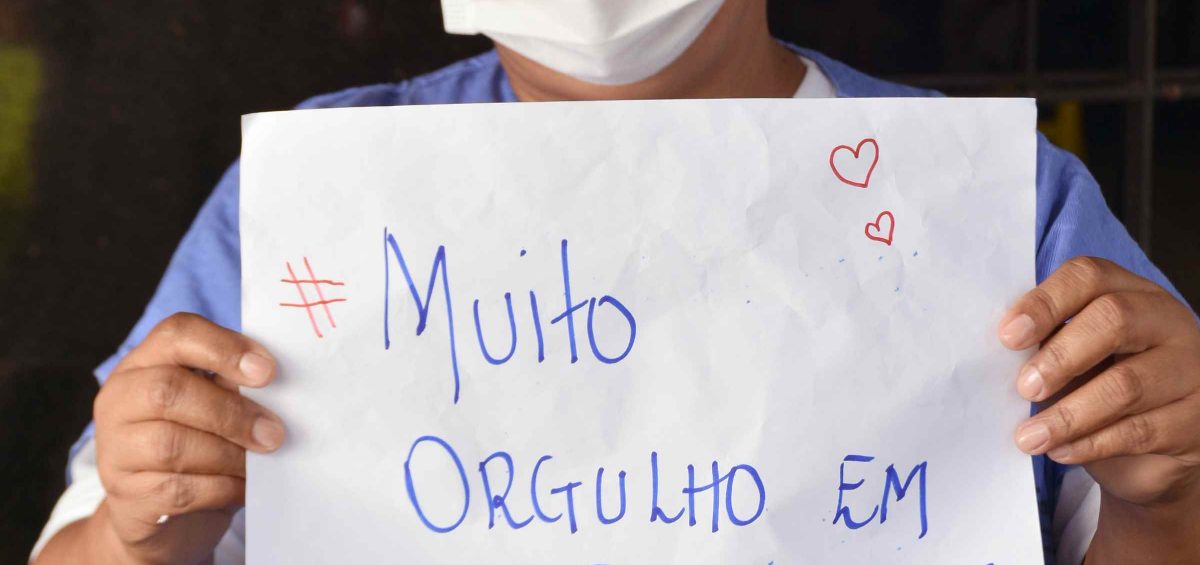 # MUITO
ORGULHO EM